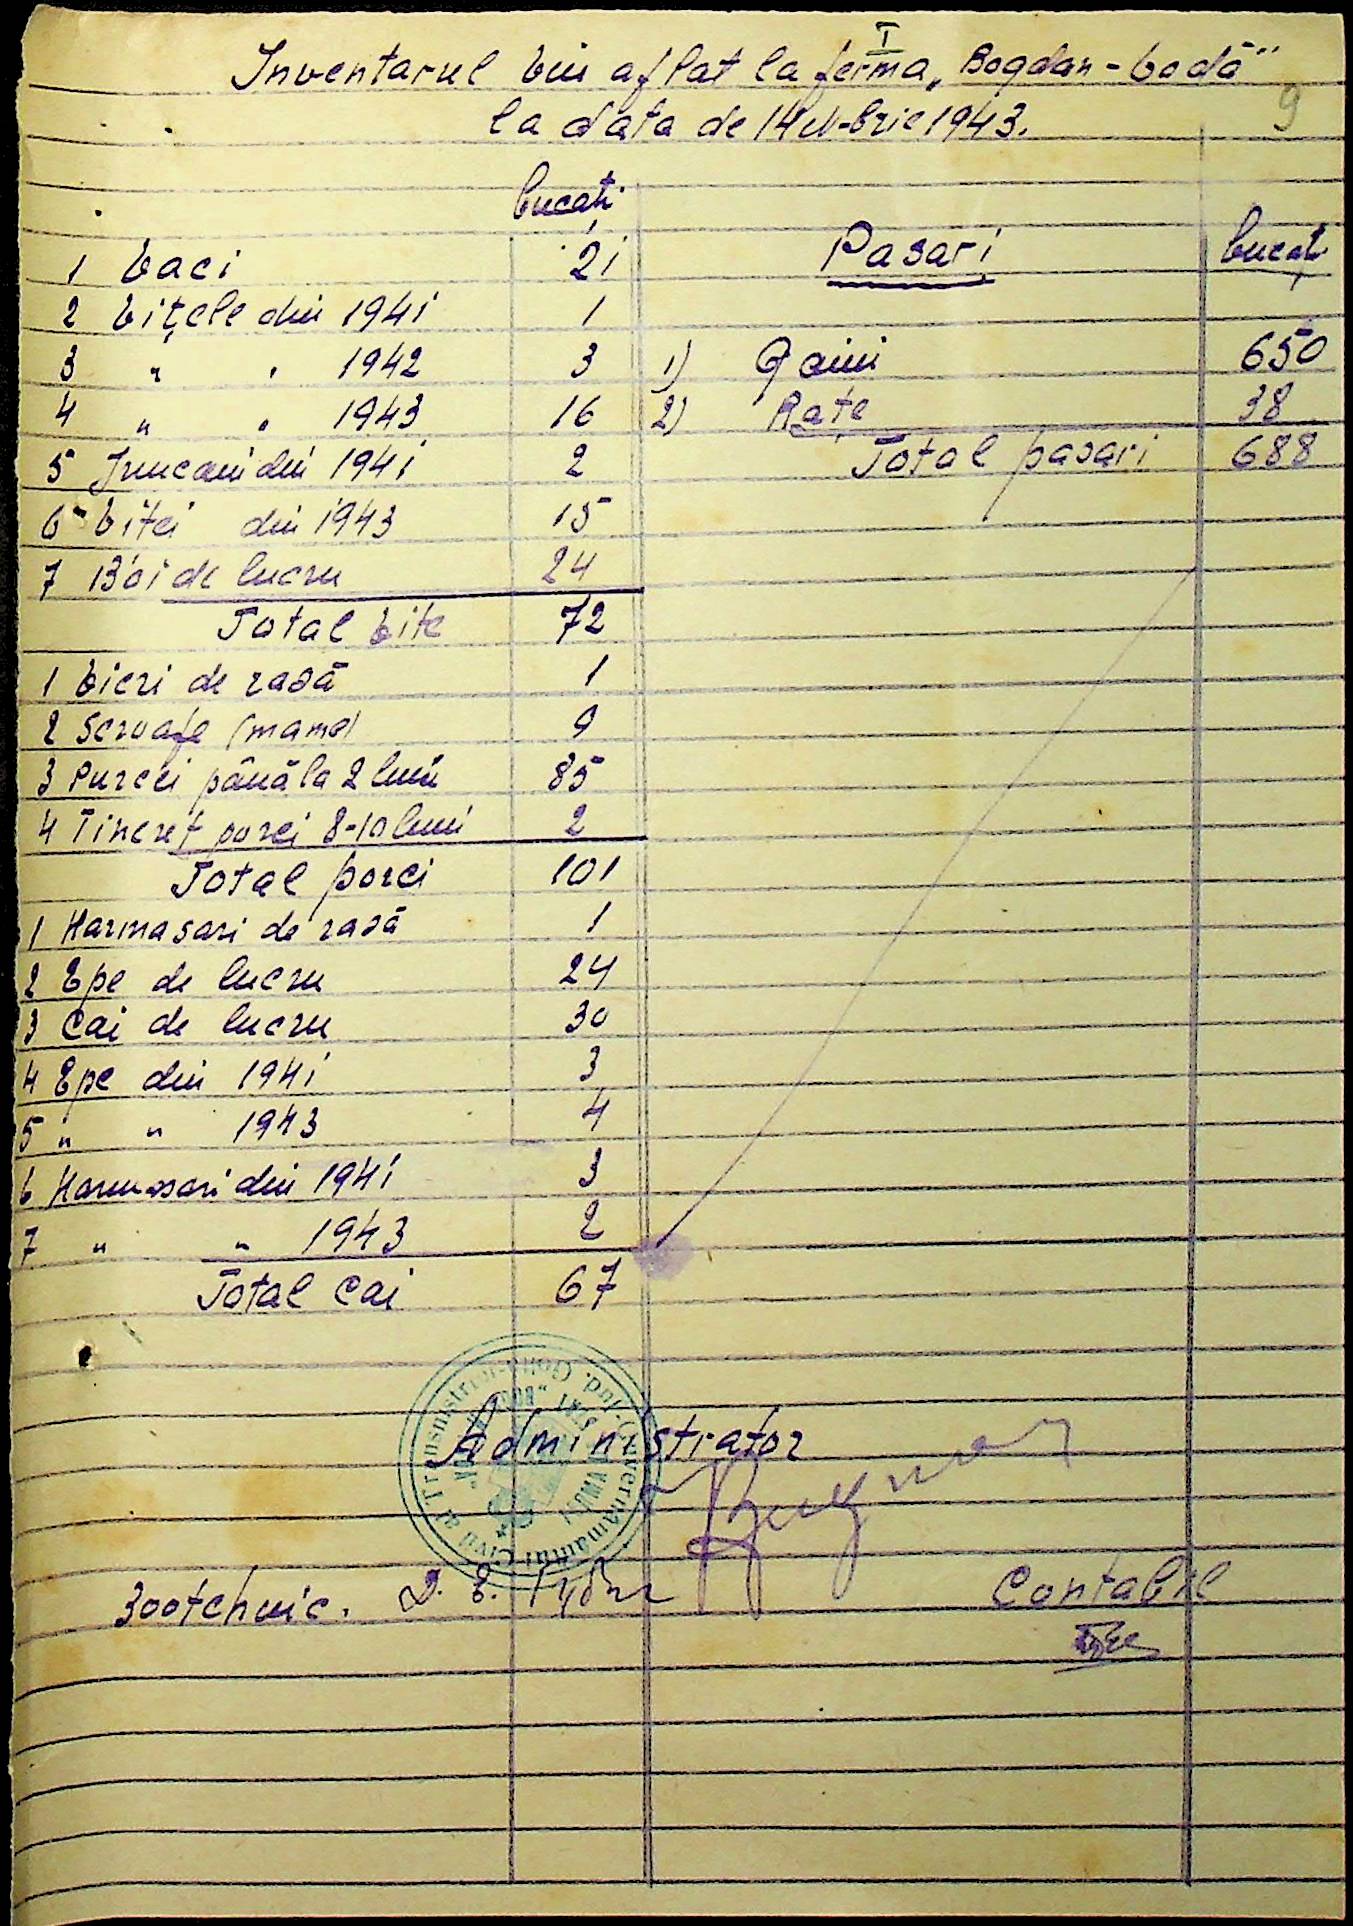 I
Inventarul viu aflat la ferma „Bogdan-Vodă"
la data de 14 N-brie 1943.
9
bucăți
Pasari bucăți
1 Vaci 21
2 Vițele din 1941 1
3 " " 1942 3 1) Găini 650
4 " " 1943 16 2) Rațe 38
Total pasari 688
5 Juncani din 1941 2
6 Viței din 1943 15
7 Boi de lucru 24
Total vite 72
1 Vieri de rasă 1
2 Scroafe (mame) 9
3 Purcei până la 2 luni 85
4 Tineret porci 8-10 luni 2
Total porci 101
1 Harmasari de rasă 1
2 Epe de lucru 24
3 Cai de lucru 30
4 Epe din 1941 3
5 " " 1943 4
6 Harmasari din 1941 3
7 " " 1943 2
Total cai 67
Guvernământul Civil al Transnistriei-Jud. Golta
Administrator
Zootehnic. Contabil